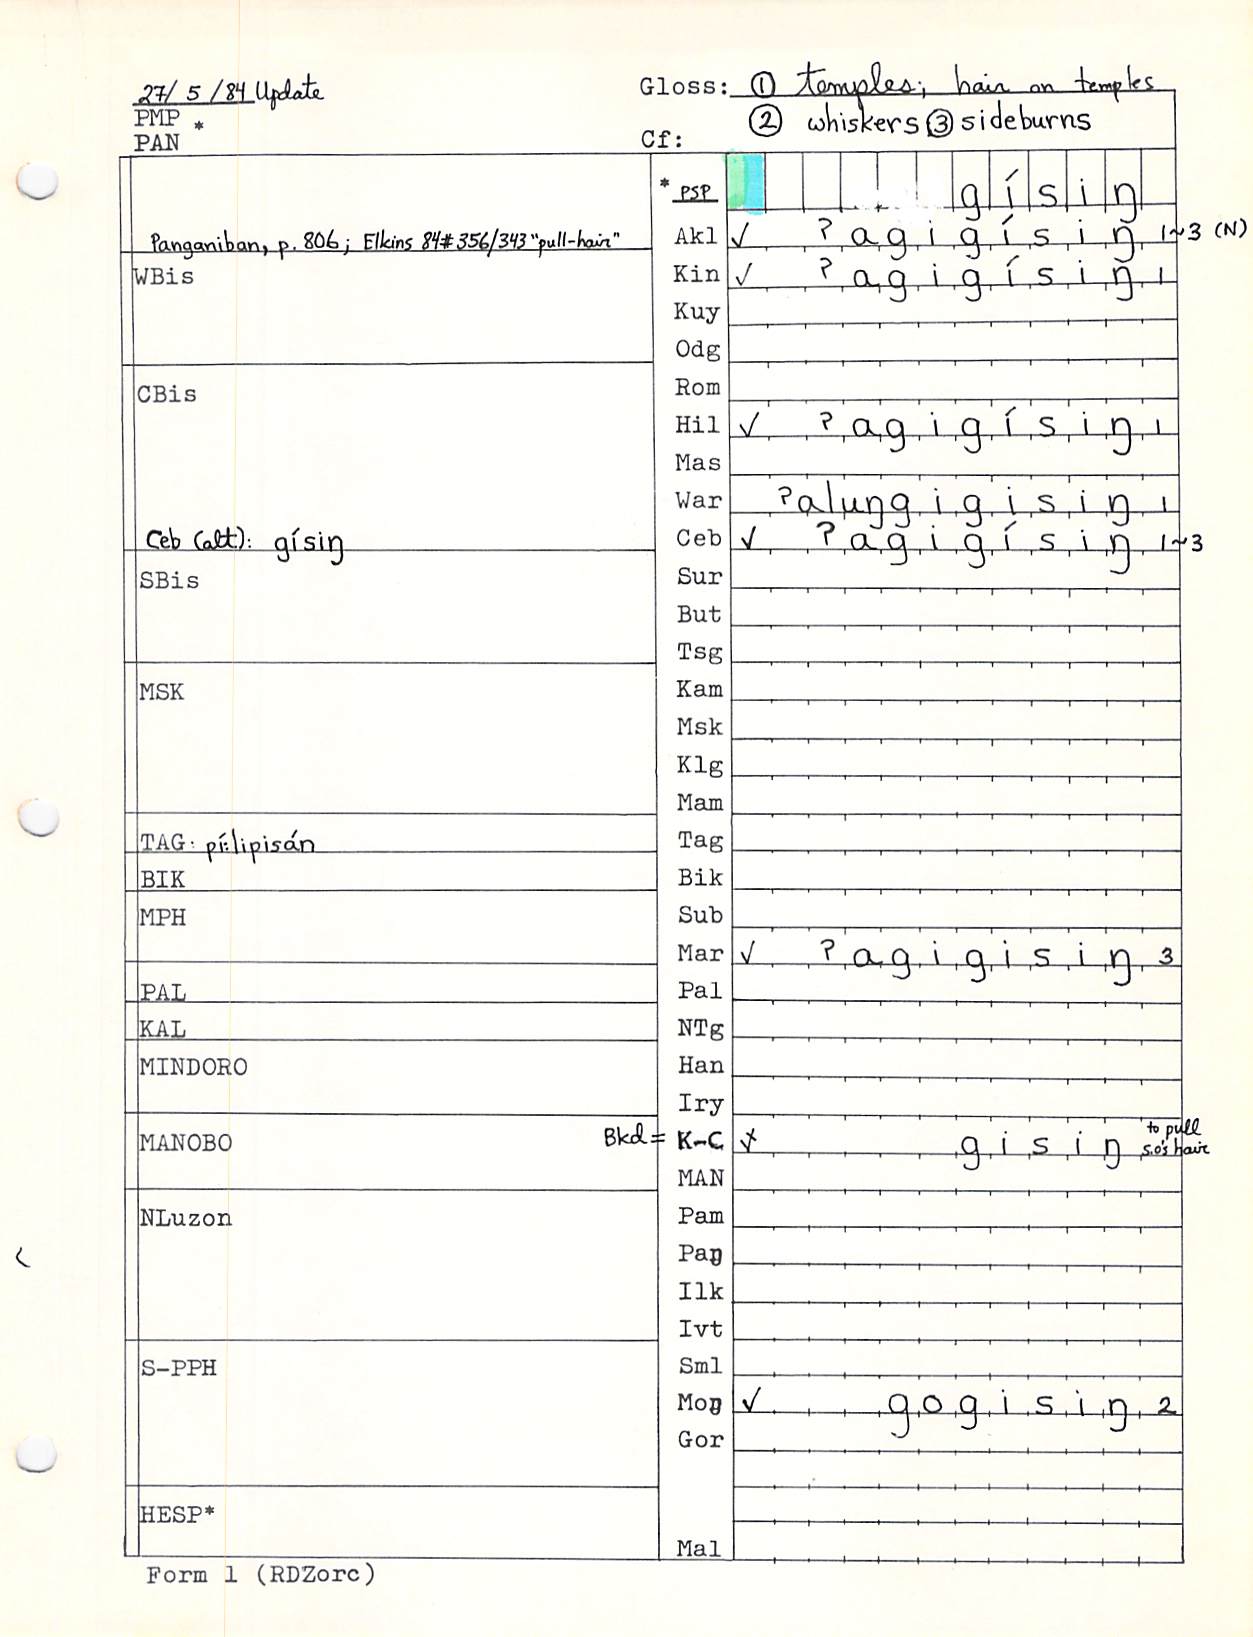 27/ 5 /84 Update
Gloss: ① temples; hair on temples
PMP *
② whiskers ③ sideburns
PAN
Cf:
* PSP gísiŋ
Panganiban, p. 806; Elkins 84#356/343 "pull-hair"
Akl ✓ ʔagigísiŋ 1~3 (N)
WBis
Kin ✓ ʔagigísiŋ 1
Kuy
Odg
CBis
Rom
Hil ✓ ʔagigísiŋ 1
Mas
War ʔaluŋgigisiŋ 1
Ceb (alt): gísiŋ
Ceb ✓ ʔagigísiŋ 1~3
SBis
Sur
But
Tsg
MSK
Kam
Msk
Klg
Mam
TAG: pí:lipisán
Tag
BIK
Bik
MPH
Sub
Mar ✓ ʔagigisiŋ 3
PAL
Pal
KAL
NTg
MINDORO
Han
Iry
MANOBO
Bkd = K-C ✓ gisiŋ to pull s.o's hair
MAN
NLuzon
Pam
Paŋ
Ilk
Ivt
S-PPH
Sml
Moŋ ✓ gogisiŋ 2
Gor
HESP*
Mal
Form 1 (RDZorc)